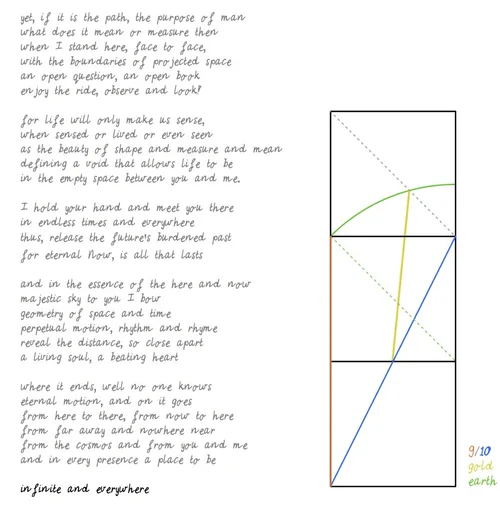 yet, if it is the path, the purpose of man
what does it mean or measure then
when I stand here, face to face,
with the boundaries of projected space
an open question, an open book
enjoy the ride, observe and look!
for life will only make us sense,
when sensed or lived or even seen
as the beauty of shape and measure and mean
defining a void that allows life to be
in the empty space between you and me.
I hold your hand and meet you there
in endless times and everywhere
thus, release the future's burdened past
for eternal Now, is all that lasts
and in the essence of the here and now
majestic sky to you I bow
geometry of space and time
perpetual motion, rhythm and rhyme
reveal the distance, so close apart
a living soul, a beating heart
where it ends, well no one knows
eternal motion, and on it goes
from here to there, from now to here
from far away and nowhere near
from the cosmos and from you and me
and in every presence a place to be
infinite and everywhere
9/10
gold
earth